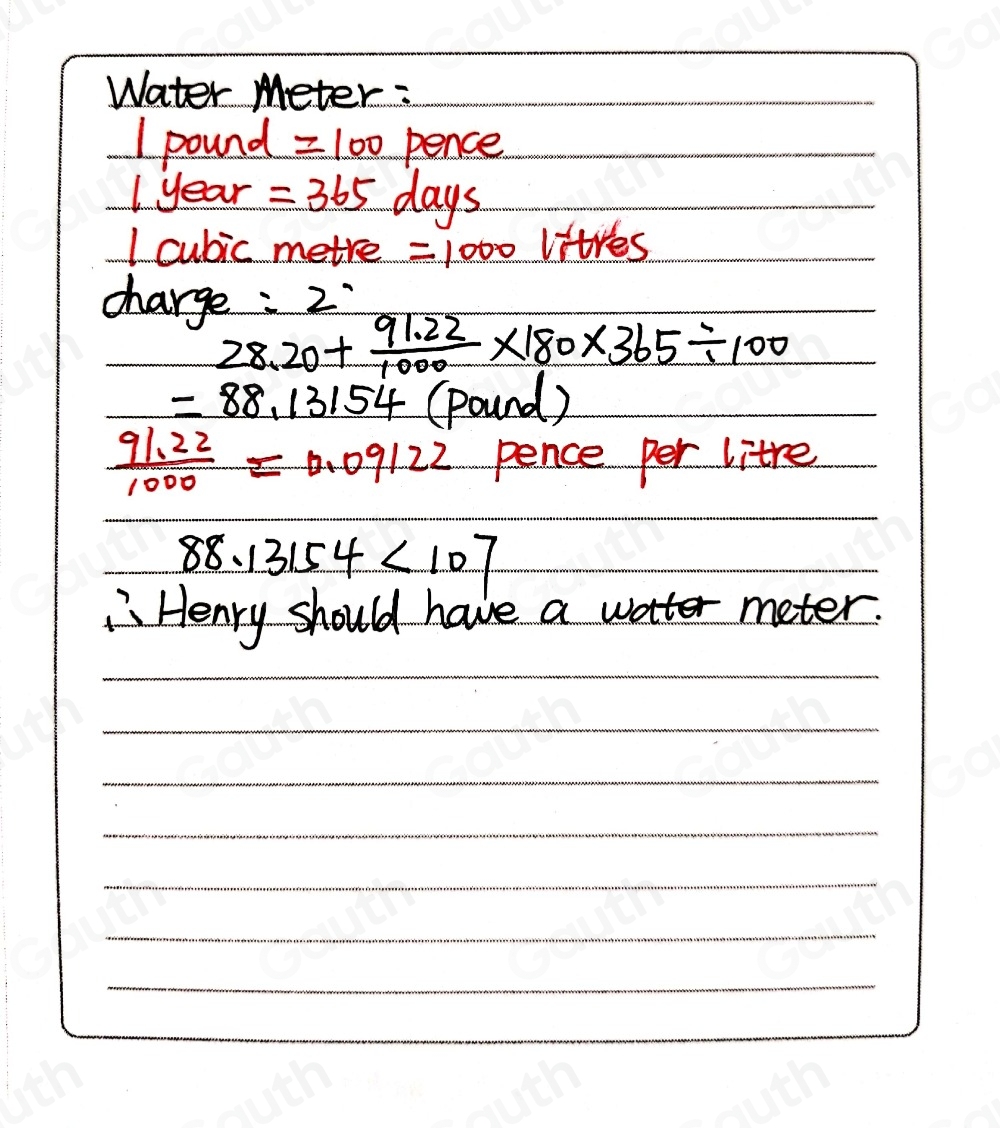 Water Meter:
1 pound = 100 pence
1 year = 365 days
1 cubic metre = 1000 litres
charge : 2
28.20 + 91.22/1000 ×180×365÷100
= 88.13154 (pound)
91.22/1000 = 0.09122 pence per litre
88.13154 < 107
∴ Henry should have a water meter.
Gauth